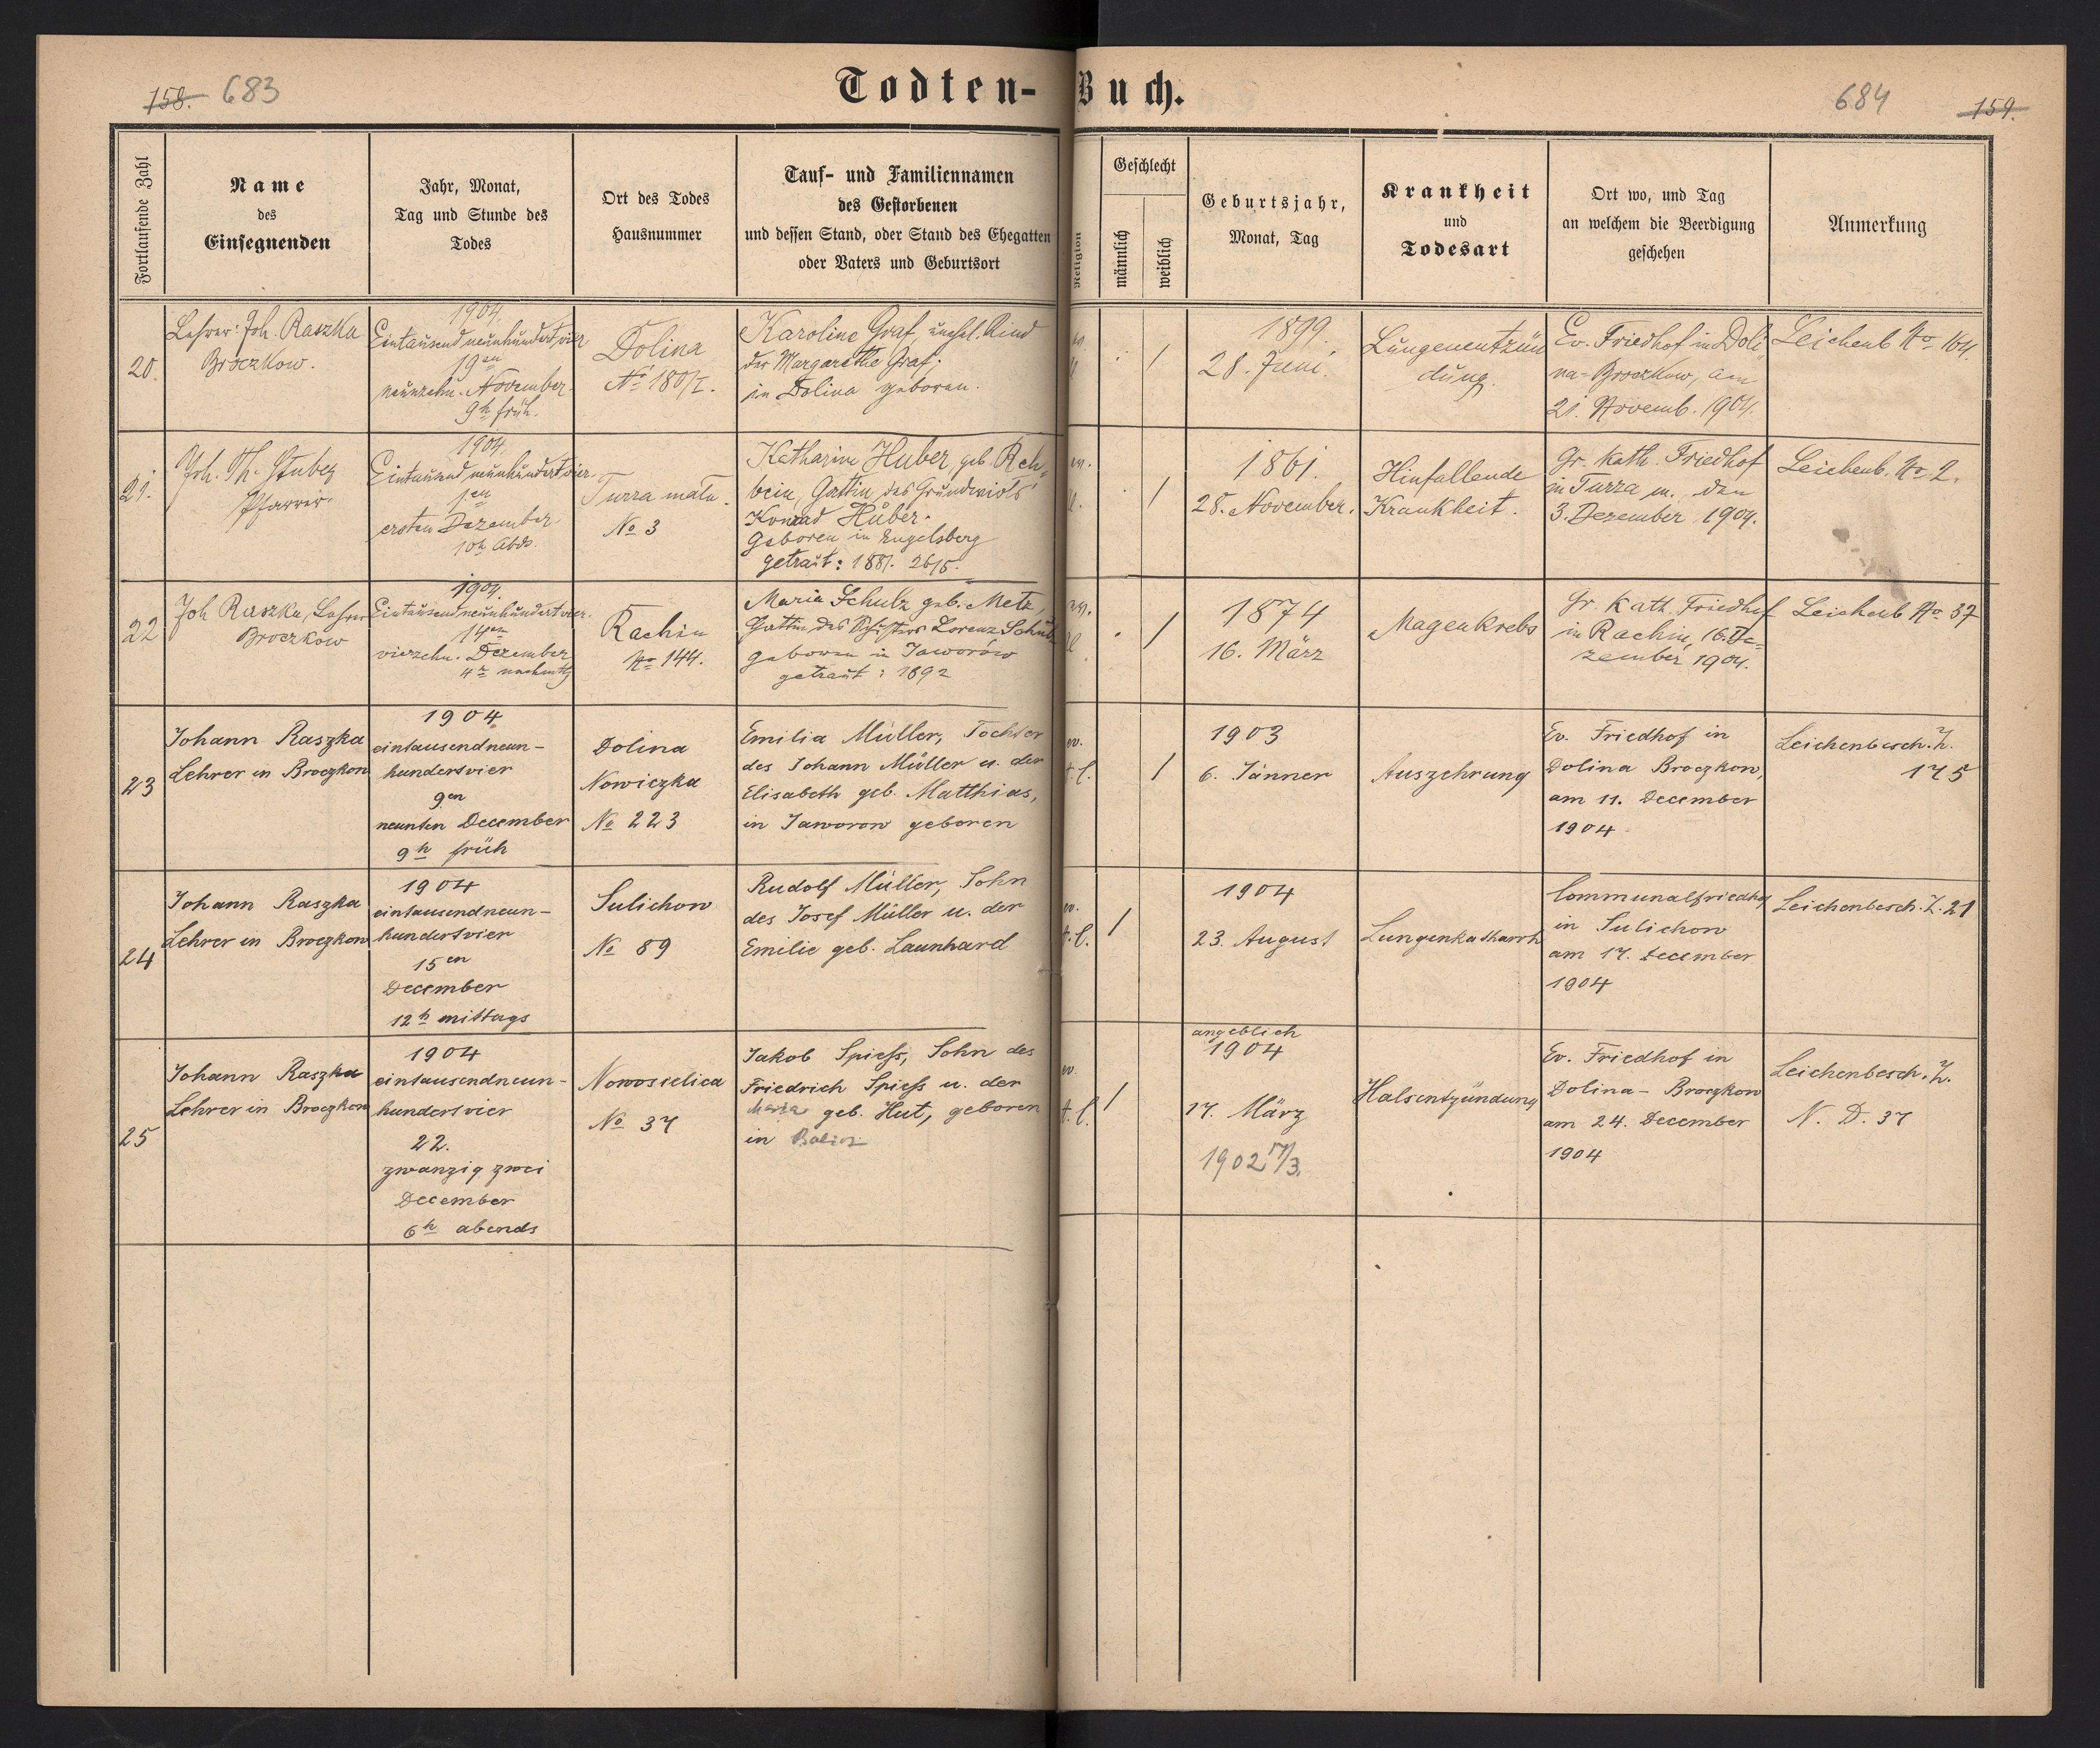 158. 683
Todten-Buch.
684 159.
Fortlaufende Zahl
Name
des
Einsegnenden
Jahr, Monat,
Tag und Stunde des
Todes
Ort des Todes
Hausnummer
Tauf- und Familiennamen
des Gestorbenen
und dessen Stand, oder Stand des Ehegatten
oder Vaters und Geburtsort
Religion
Geschlecht
männlich
weiblich
Geburtsjahr,
Monat, Tag
Krankheit
und
Todesart
Ort wo, und Tag
an welchem die Beerdigung
geschehen
Anmerkung
20.
Lehrer: Joh. Raszka
Broczkow.
1904.
Eintausend neunhundert vier
19en
neunzehn. November
9h früh.
Dolina
No 180/I.
Karoline Graf, unehel. Kind
der Margarethe Graf;
in Dolina geboren.
/
1899.
28. Juni.
Lungenentzün
dung.
Ev. Friedhof in Doli
na-Broczkow, am
21. Novemb. 1904.
Leichenb. No 164.
21.
Joh. Th. Stubez
Pfarrer.
1904.
Eintausend neunhundert vier.
1en
ersten Dezember
10h Abds.
Turza mała.
No 3
Katharina Huber, geb. Reh-
bein, Gattin des Grundwirts
Konrad Huber.
Geboren in Engelsberg
getraut: 1881. 26/5.
ev.
/
1861.
28. November.
Hinfallende
Krankheit.
Gr. Kath. Friedhof
in Turza m., den
3. Dezember 1904.
Leichenb. No 2.
22
Joh Raszka, Lehrer
Broczkow
1904.
Eintausend neunhundert vier.
14en
vierzehn. Dezember
4h nachmttg
Rachin
No 144.
Maria Schulz geb. Metz,
Gattin des Lorenz Schulz
geboren in Jaworów
getraut: 1892
ev.
/
1874
16. März
Magenkrebs
Gr. Kath. Friedhof
in Rachin, 16. De-
zember 1904.
Leichenb No 37
23
Johann Raszka
Lehrer in Broczkow
1904
eintausendneun-
hundertvier
9en
neunten December
9h früh
Dolina
Nowiczka
No 223
Emilia Müller, Tochter
des Johann Müller u. der
Elisabeth geb. Matthias,
in Jaworow geboren
ev.
/
1903
6. Jänner
Auszehrung
Ev. Friedhof in
Dolina Broczkow,
am 11. December
1904
Leichenbesch. Z.
175
24
Johann Raszka
Lehrer in Broczkow
1904
eintausendneun-
hundertvier
15en
December
12h mittags
Sulichow
No 89
Rudolf Müller, Sohn
des Josef Müller u. der
Emilie geb. Launhard
ev.
/
1904
23. August
Lungenkatharrh
Communalfriedhof
in Sulichow
am 17. December
1904
Leichenbesch. Z. 21
25
Johann Raszka
Lehrer in Broczkow
1904
eintausendneun-
hundertvier
22.
zwanzig zwei
December
6h abends
Nowosielica
No 37
Jakob Spieß, Sohn des
Friedrich Spieß u. der
Maria geb. Hut, geboren
in
ev.
/
angeblich
1904
17. März
1902 17/3.
Halsentzündung
Ev. Friedhof in
Dolina-Broczkow
am 24. December
1904
Leichenbesch. Z.
N. D. 37